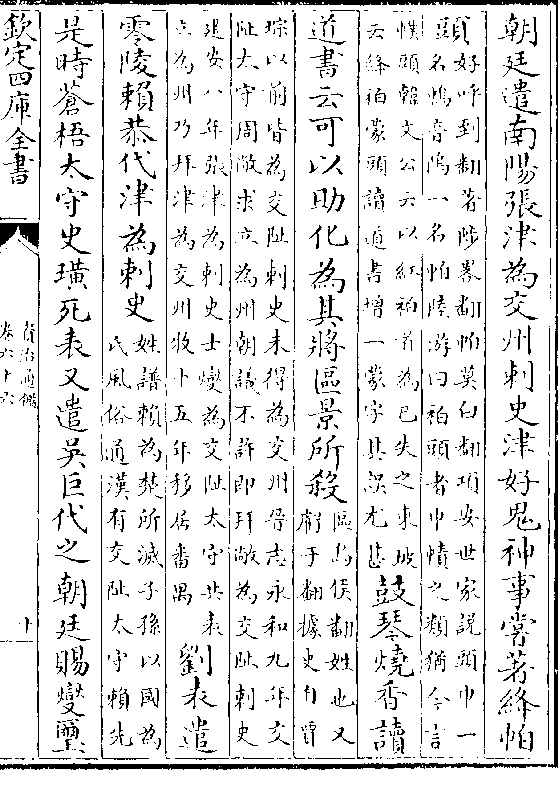 朝廷遣南陽張津為交州刺史津好鬼神事嘗著絳帕
頭
好呼到翻著陟畧翻帕莫白翻項安世家說頭巾一
名音一名帕陸游曰袙頭者巾幘之類猶今言
幞頭韓文公云以紅袙首為已失之東坡
云絳袙蒙頭讀道書增一蒙字其誤尤甚
鼓琴燒香讀
道書云可以助化為其將區景所殺
區烏侯翻姓也又
虧于翻據史自曹
琮以前皆為交阯刺史未得為交州晉志永和九年交
阯太守周敞求立為州朝議不許即拜敞為交阯刺史
建安八年張津為刺史士燮為交阯太守共表
立為州乃拜津為交州牧十五年移居番禺
劉表遣
零陵賴恭代津為刺史
姓譜賴為楚所滅子孫以國為
氏風俗通漢有交阯太守賴先
是時蒼梧太守史璜死表又遣吳巨代之朝廷賜燮璽
欽定四庫全書
資治通鑑
卷六十六
十